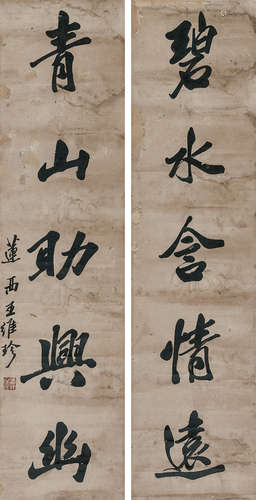 碧水含情遠
青山助興幽
蓮西王維珍